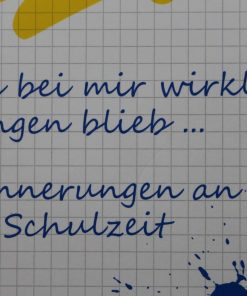 bei mir wirkl
ngen blieb ...
nnerungen an
Schulzeit